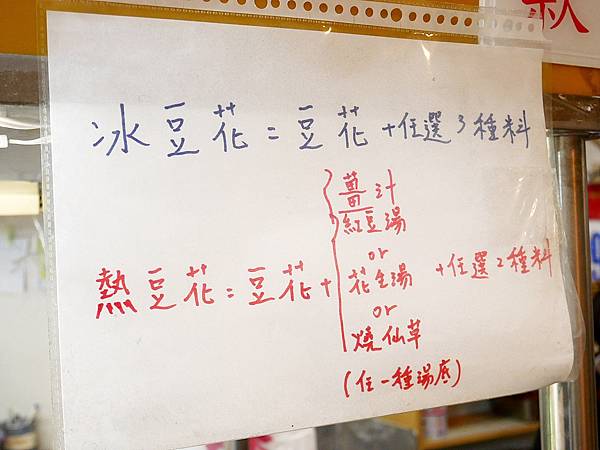 冰豆花=豆花+任選3種料
薑汁
紅豆湯
or
熱豆花=豆花+花生湯+任選2種料
or
燒仙草
(任一種湯底)